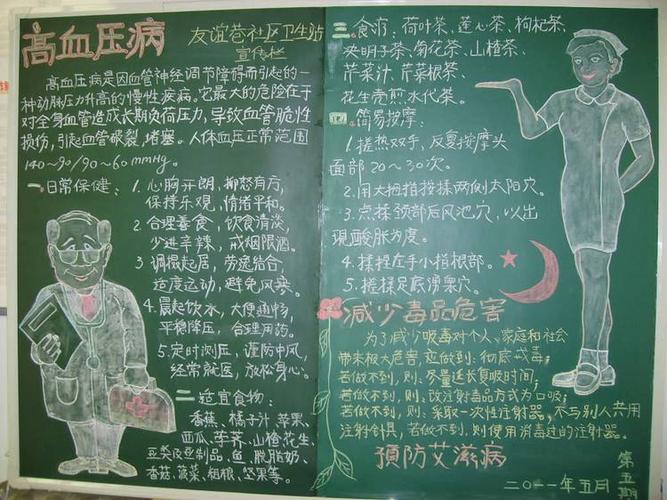 高血压病
友谊巷社区卫生站
宣传栏
高血压病是因血管神经调节障碍而引起的一
种动脉压力升高的慢性疾病。它最大的危险在于
对全身血管造成长期负荷压力,导致血管脆性
损伤,引起血管破裂,堵塞。人体血压正常范围
140~90/90~60mmHg。
一.日常保健:1.心胸开朗,抑怒有方,
保持乐观,情绪平和。
2.合理善食,饮食清淡
少进辛辣,戒烟限酒。
3.调摄起居,劳逸结合,
适度运动,避免风寒。
4.晨起饮水,大便通畅,
平稳降压,合理用药。
5.定时测压,谨防中风,
经常就医,放松身心。
二.适宜食物:
香蕉、橘子汁、苹果、
西瓜、荸荠、山楂、花生、
豆类及豆制品、鱼、脱脂奶、
香菇、菠菜、粗粮、坚果等。
三.食疗:荷叶茶、莲心茶、枸杞茶、
决明子茶、菊花茶、山楂茶、
芹菜汁、芹菜根茶、
花生壳煎水代茶。
四.简易按摩:
1.搓热双手,反复按摩头
面部20~30次。
2.用大拇指按揉两侧太阳穴。
3.点揉颈部后风池穴,以出
现酸胀为度。
4.揉捏左手小指根部。
5.搓揉足底涌泉穴。
减少毒品危害
为了减少吸毒对个人、家庭和社会
带来极大危害,应做到:彻底戒毒;
若做不到,则:尽量延长复吸时间;
若做不到,则:改注射毒品方式为口吸;
若做不到,则:采取一次性注射器,不与别人共用
注射针具,若做不到,则使用消毒过的注射器。
預防艾滋病
二〇一一年五月
第五期